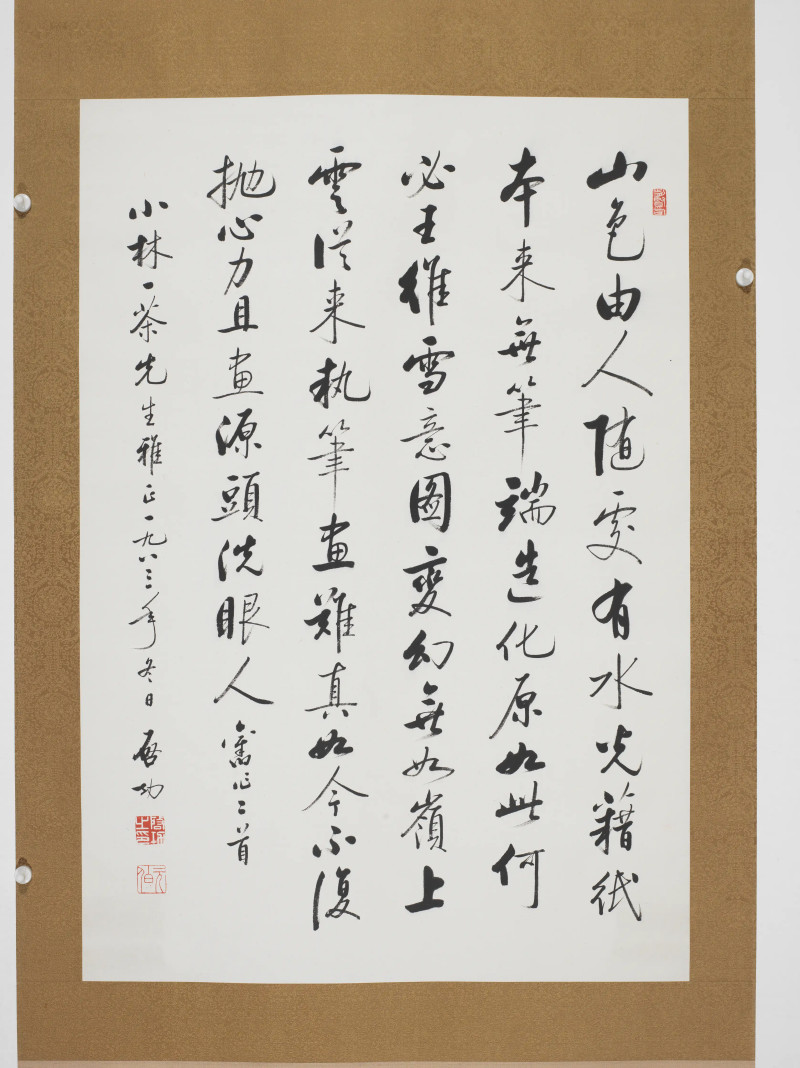 山色由人随處有水光籍紙
本来無筆端造化原如此何
必王維雪意圖變幻無如嶺上
雲從来執筆畫難真如今不復
抛心力且畫源頭洗眼人 舊作二首
小林一茶先生雅正一九八三年冬日 啟功
啟功之印
元白